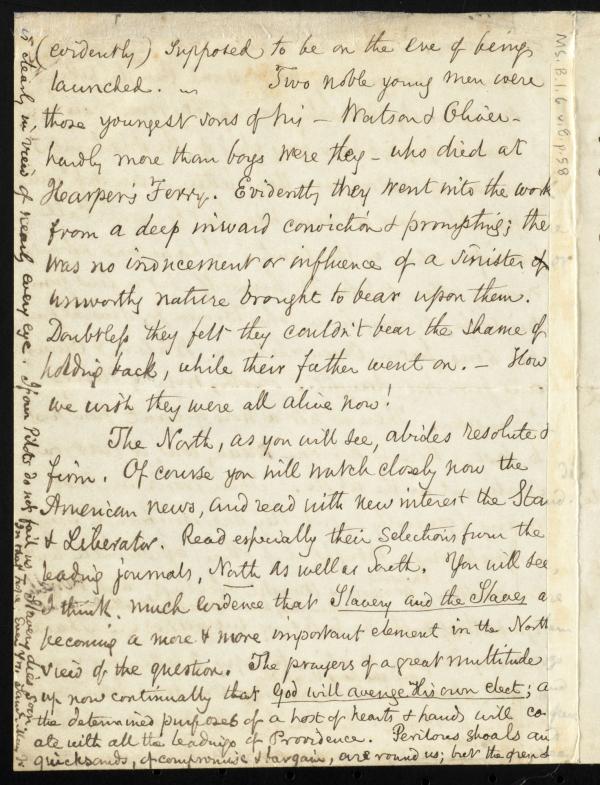 (evidently) supposed to be on the eve of being
launched. — Two noble young men were
those youngest sons of his — Watson & Oliver —
hardly more than boys were they — who died at
Harper's Ferry. Evidently they went into the work
from a deep inward conviction & prompting; the
was no inducement or influence of a sinister or
unworthy nature brought to bear upon them.
Doubtless they felt they couldn't bear the shame of
holding back, while their father went on. — How
we wish they were all alive now!
The North, as you will see, abides resolute &
firm. Of course you will watch closely now the
American news, and read with new interest the Stan
& Liberator. Read especially their selections from the
leading journals, North as well as South. You will see
I think, much evidence that Slavery and the Slaves a
becoming a more & more important element in the North
view of the question. The prayers of a great multitude
up now continually that God will avenge His own elect; a
the determined purposes of a host of hearts & hands will co-
ate with all the leadings of Providence. Perilous shoals an
quicksands, of compromise & bargain, are round us; but the open
is clearly in view of nearly every eye. If our Pilots do not fail us, Slavery dies soon.
In that hope Ever Yrs.
MS. B.1.6 v.8 p.58